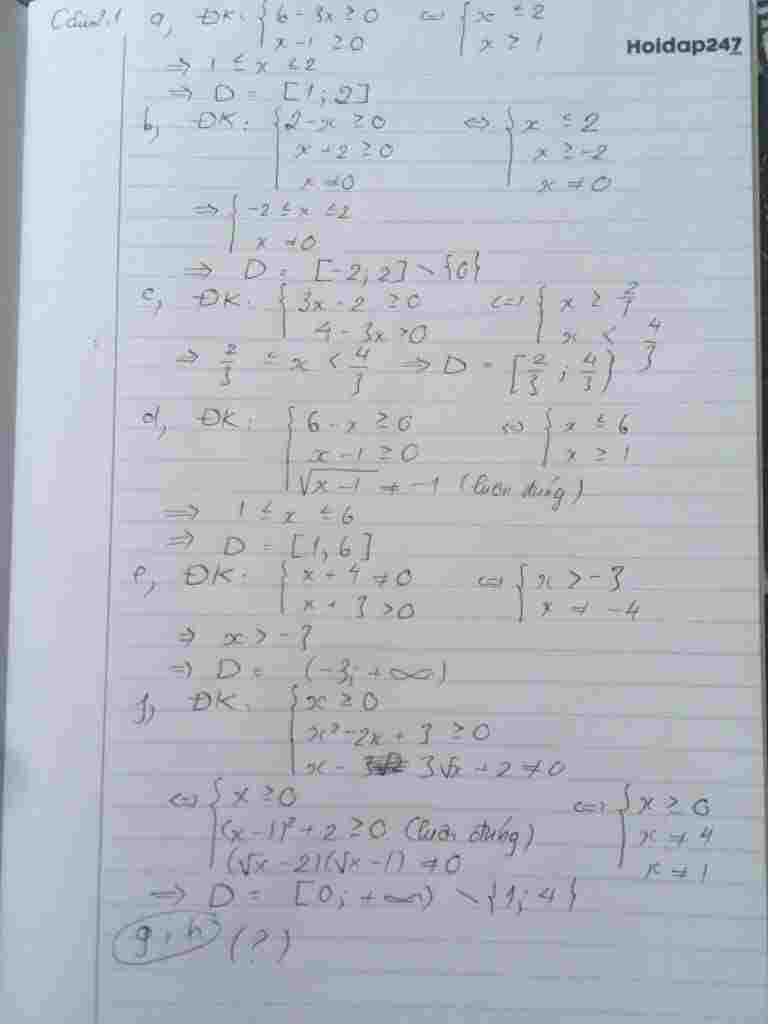 Câu 2.1 a, ĐK: { 6 - 3x ≥ 0 ⇔ { x ≤ 2
x - 1 ≥ 0 x ≥ 1
Hoidap247
⇒ 1 ≤ x ≤ 2
⇒ D = [1; 2]
b, ĐK: { 2 - x ≥ 0 ⇔ { x ≤ 2
x + 2 ≥ 0 x ≥ -2
x ≠ 0 x ≠ 0
⇒ { -2 ≤ x ≤ 2
x ≠ 0
⇒ D = [-2; 2] \ {0}
c, ĐK: { 3x - 2 ≥ 0 ⇔ { x ≥
4 - 3x > 0 x < 4/3
⇒ 2/3 ≤ x < 4/3 ⇒ D = [2/3; 4/3)
d, ĐK: { 6 - x ≥ 0 ⇔ { x ≤ 6
x - 1 ≥ 0 x ≥ 1
√(x - 1) ≠ -1 (luôn đúng)
⇒ 1 ≤ x ≤ 6
⇒ D = [1; 6]
e, ĐK: { x + 4 ≠ 0 ⇔ { x > -3
x + 3 > 0 x ≠ -4
⇒ x > -3
⇒ D = (-3; +∞)
f, ĐK: { x ≥ 0
x² - 2x + 3 ≥ 0
x - 3√x + 2 ≠ 0
⇔ { x ≥ 0 ⇔ { x ≥ 0
(x - 1)² + 2 ≥ 0 (luôn đúng) x ≠ 4
(√x - 2)(√x - 1) ≠ 0 x ≠ 1
⇒ D = [0; +∞) \ {1; 4}
g, h (?)